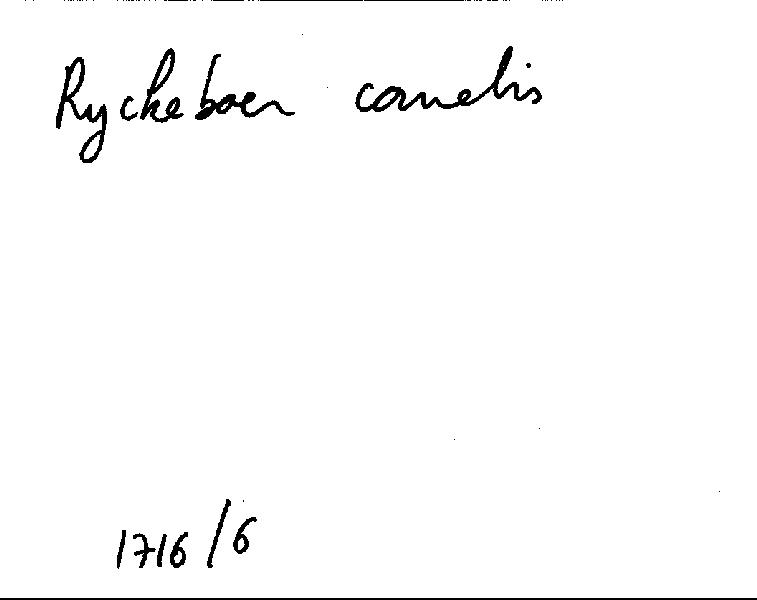 Ryckeboer cornelis
1716/6